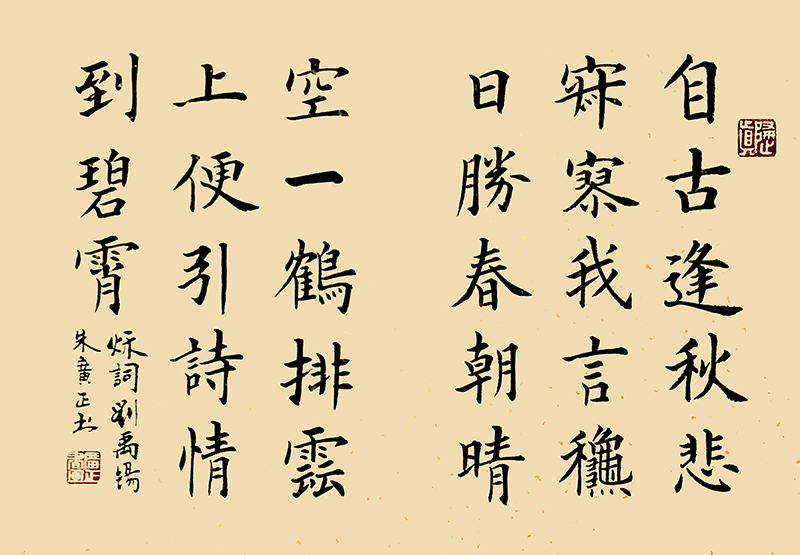 自古逢秋悲
寂寥我言龝
日勝春朝晴
空一鶴排雲
上便引詩情
到碧霄
秌詞劉禹錫
朱廣正书